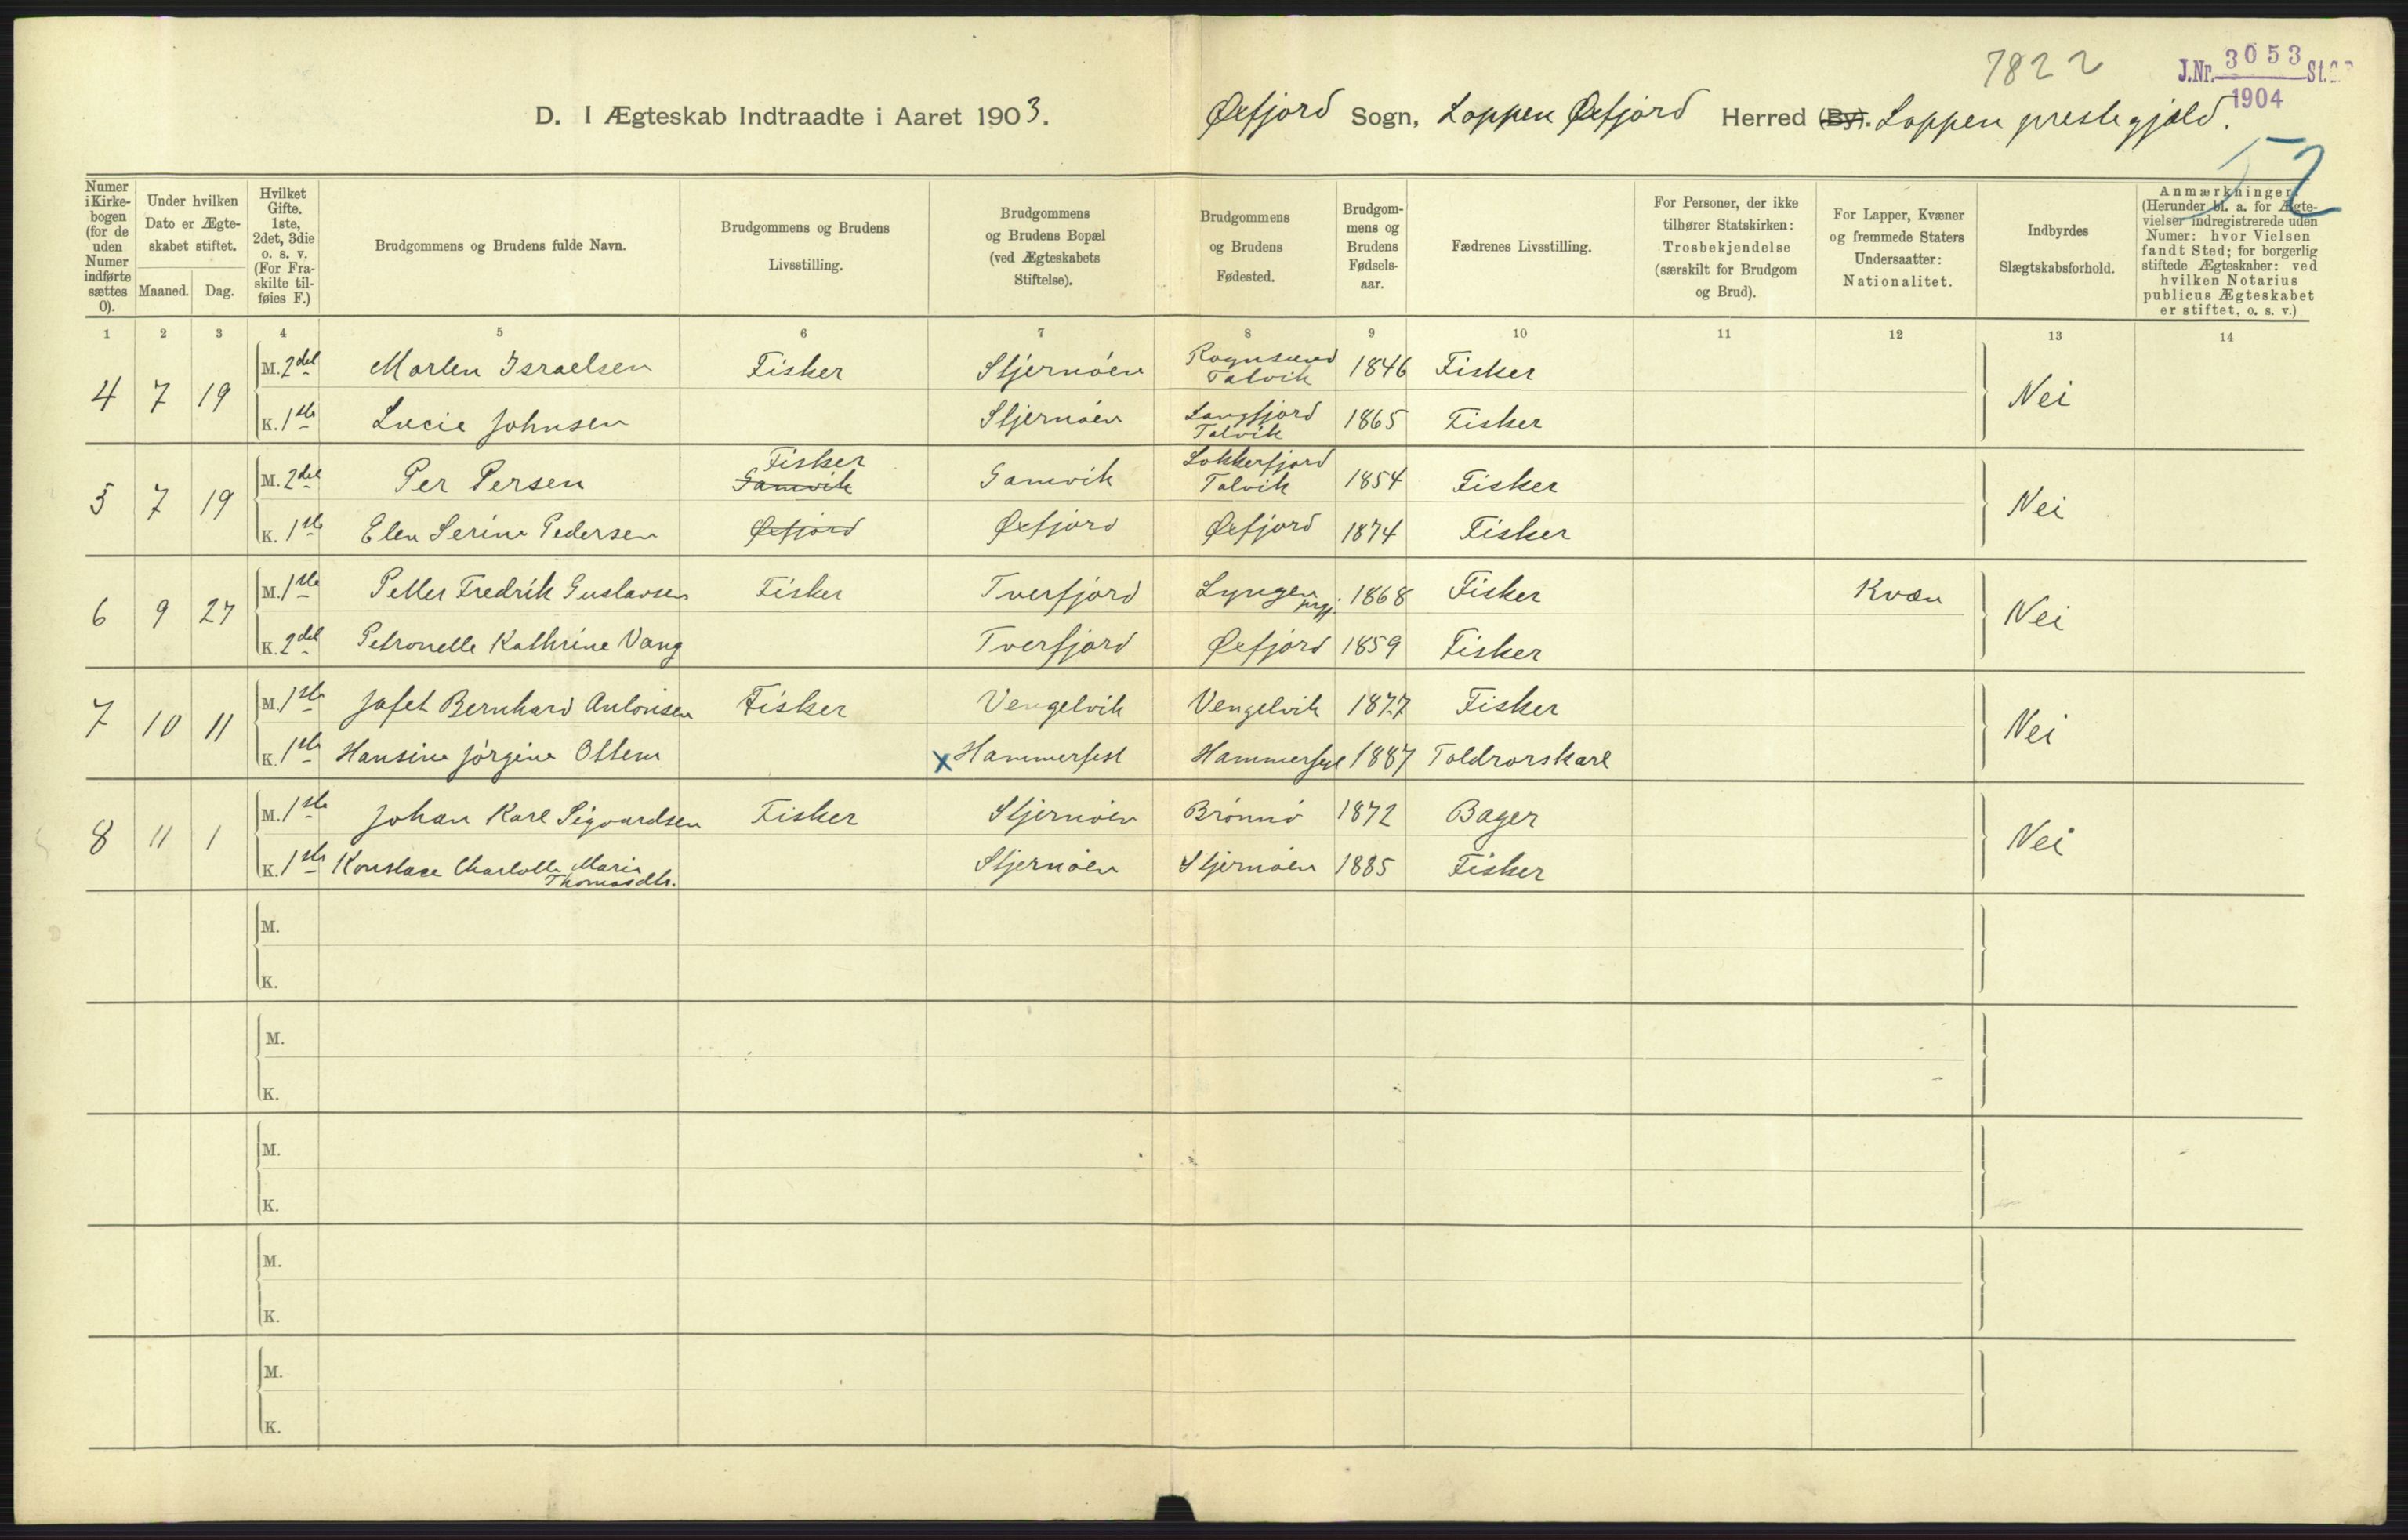 7822
J.Nr. 3053 St.
1904
D. I Ægteskab Indtraadte i Aaret 1903. Øxfjord Sogn, Loppen Øxfjord Herred (By). Loppen prestegjæld.
52
Numer i Kirkebogen (for de uden Numer indførte sættes 0).
Under hvilken Dato er Ægteskabet stiftet.
Maaned. Dag.
Hvilket Gifte. 1ste, 2det, 3die o. s. v. (For Fraskilte tilføies F.)
Brudgommens og Brudens fulde Navn.
Brudgommens og Brudens Livsstilling.
Brudgommens og Brudens Bopæl (ved Ægteskabets Stiftelse).
Brudgommens og Brudens Fødested.
Brudgommens og Brudens Fødselsaar.
Fædrenes Livsstilling.
For Personer, der ikke tilhører Statskirken: Trosbekjendelse (særskilt for Brudgom og Brud).
For Lapper, Kvæner og fremmede Staters Undersaatter: Nationalitet.
Indbyrdes Slægtskabsforhold.
Anmærkninger. (Herunder bl. a. for Ægtevielser indregistrerede uden Numer: hvor Vielsen fandt Sted; for borgerlig stiftede Ægteskaber: ved hvilken Notarius publicus Ægteskabet er stiftet, o. s. v.)
1 2 3 4 5 6 7 8 9 10 11 12 13 14
4 7 19 M. 2det Morten Israelsen Fisker Stjernöen Rognsund Talvik 1846 Fisker Nei
K. 1ste Lucie Johnsen Stjernöen Langfjord Talvik 1865 Fisker
5 7 19 M. 2det Per Persen Fisker Gamvik Gamvik Lokkerfjord Talvik 1854 Fisker Nei
K. 1ste Elen Serine Pedersen Øxfjord Øxfjord Øxfjord 1874 Fisker
6 9 27 M. 1ste Petter Fredrik Gustavsen Fisker Tverfjord Lyngen prgj. 1868 Fisker Kvæn Nei
K. 2det Petronelle Kathrine Vang Tverfjord Øxfjord 1859 Fisker
7 10 11 M. 1ste Jafet Bernhard Antonisen Fisker Vengelvik Vengelvik 1877 Fisker Nei
K. 1ste Hansine Jörgine Ottem x Hammerfest Hammerfest 1887 Toldrorskarl
8 11 1 M. 1ste Johan Karl Sigvardsen Fisker Stjernöen Brönnö 1872 Bager Nei
K. 1ste Konstace Charlotte Marie Thomasdtr. Stjernöen Stjernöen 1885 Fisker
M.
K.
M.
K.
M.
K.
M.
K.
M.
K.